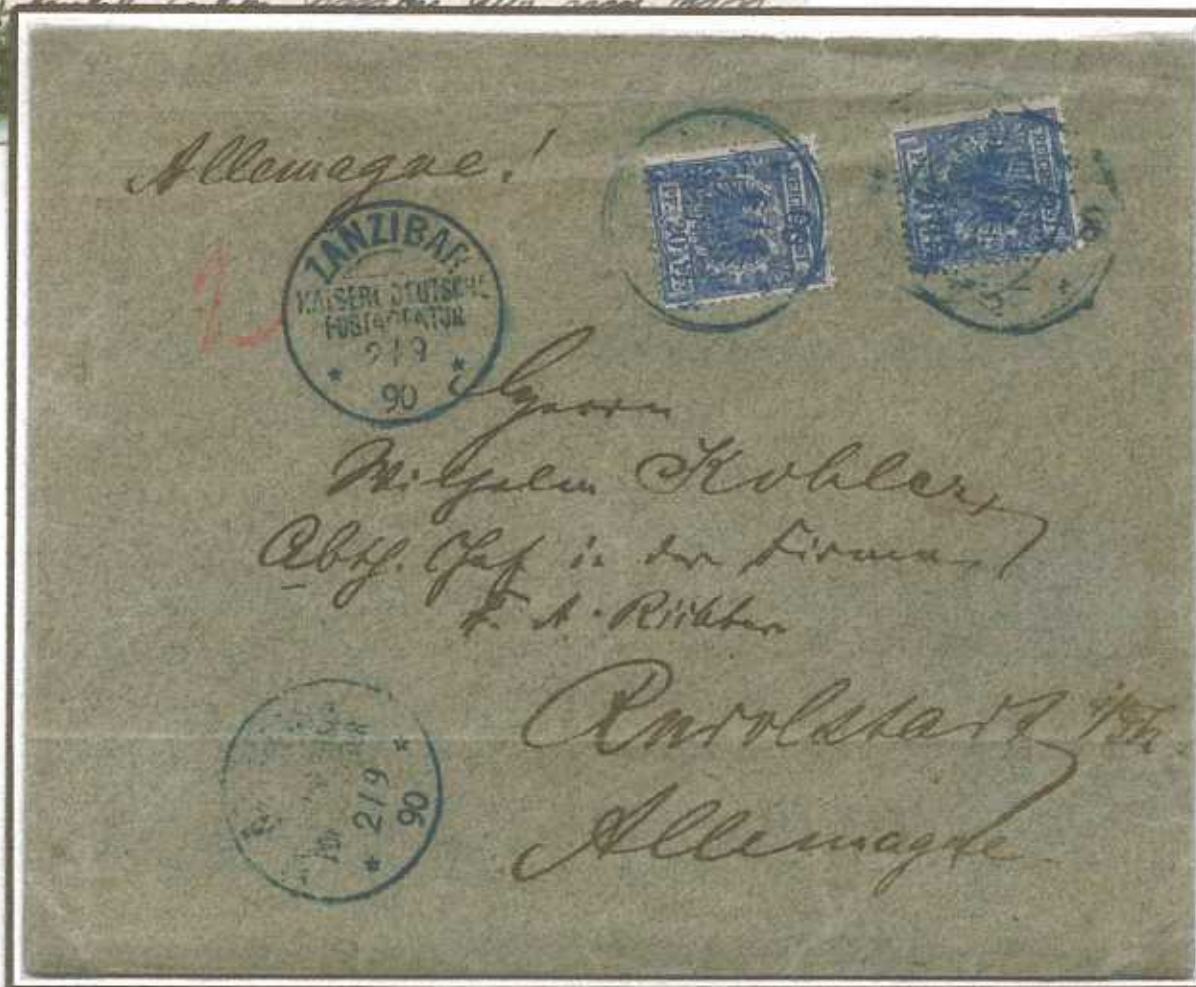 Allemagne!
ZANZIBAR
KAISERL. DEUTSCHE
POSTAGENTUR
2/9
90
20
Herrn
Wilhelm Kohler,
Abth. Chef in der Firma
F. A. Richter
Rudolstadt i/Th.
Allemagne
2/9
90